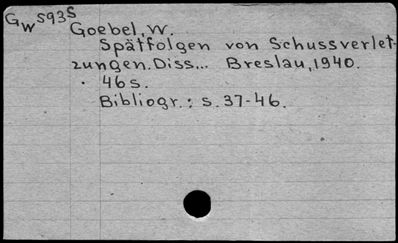 Gw S93S
Goebel, W.
Spätfolgen von Schussverlet-
zungen. Diss... Breslau, 1940.
46 s.
Bibliogr.: s. 37-46.